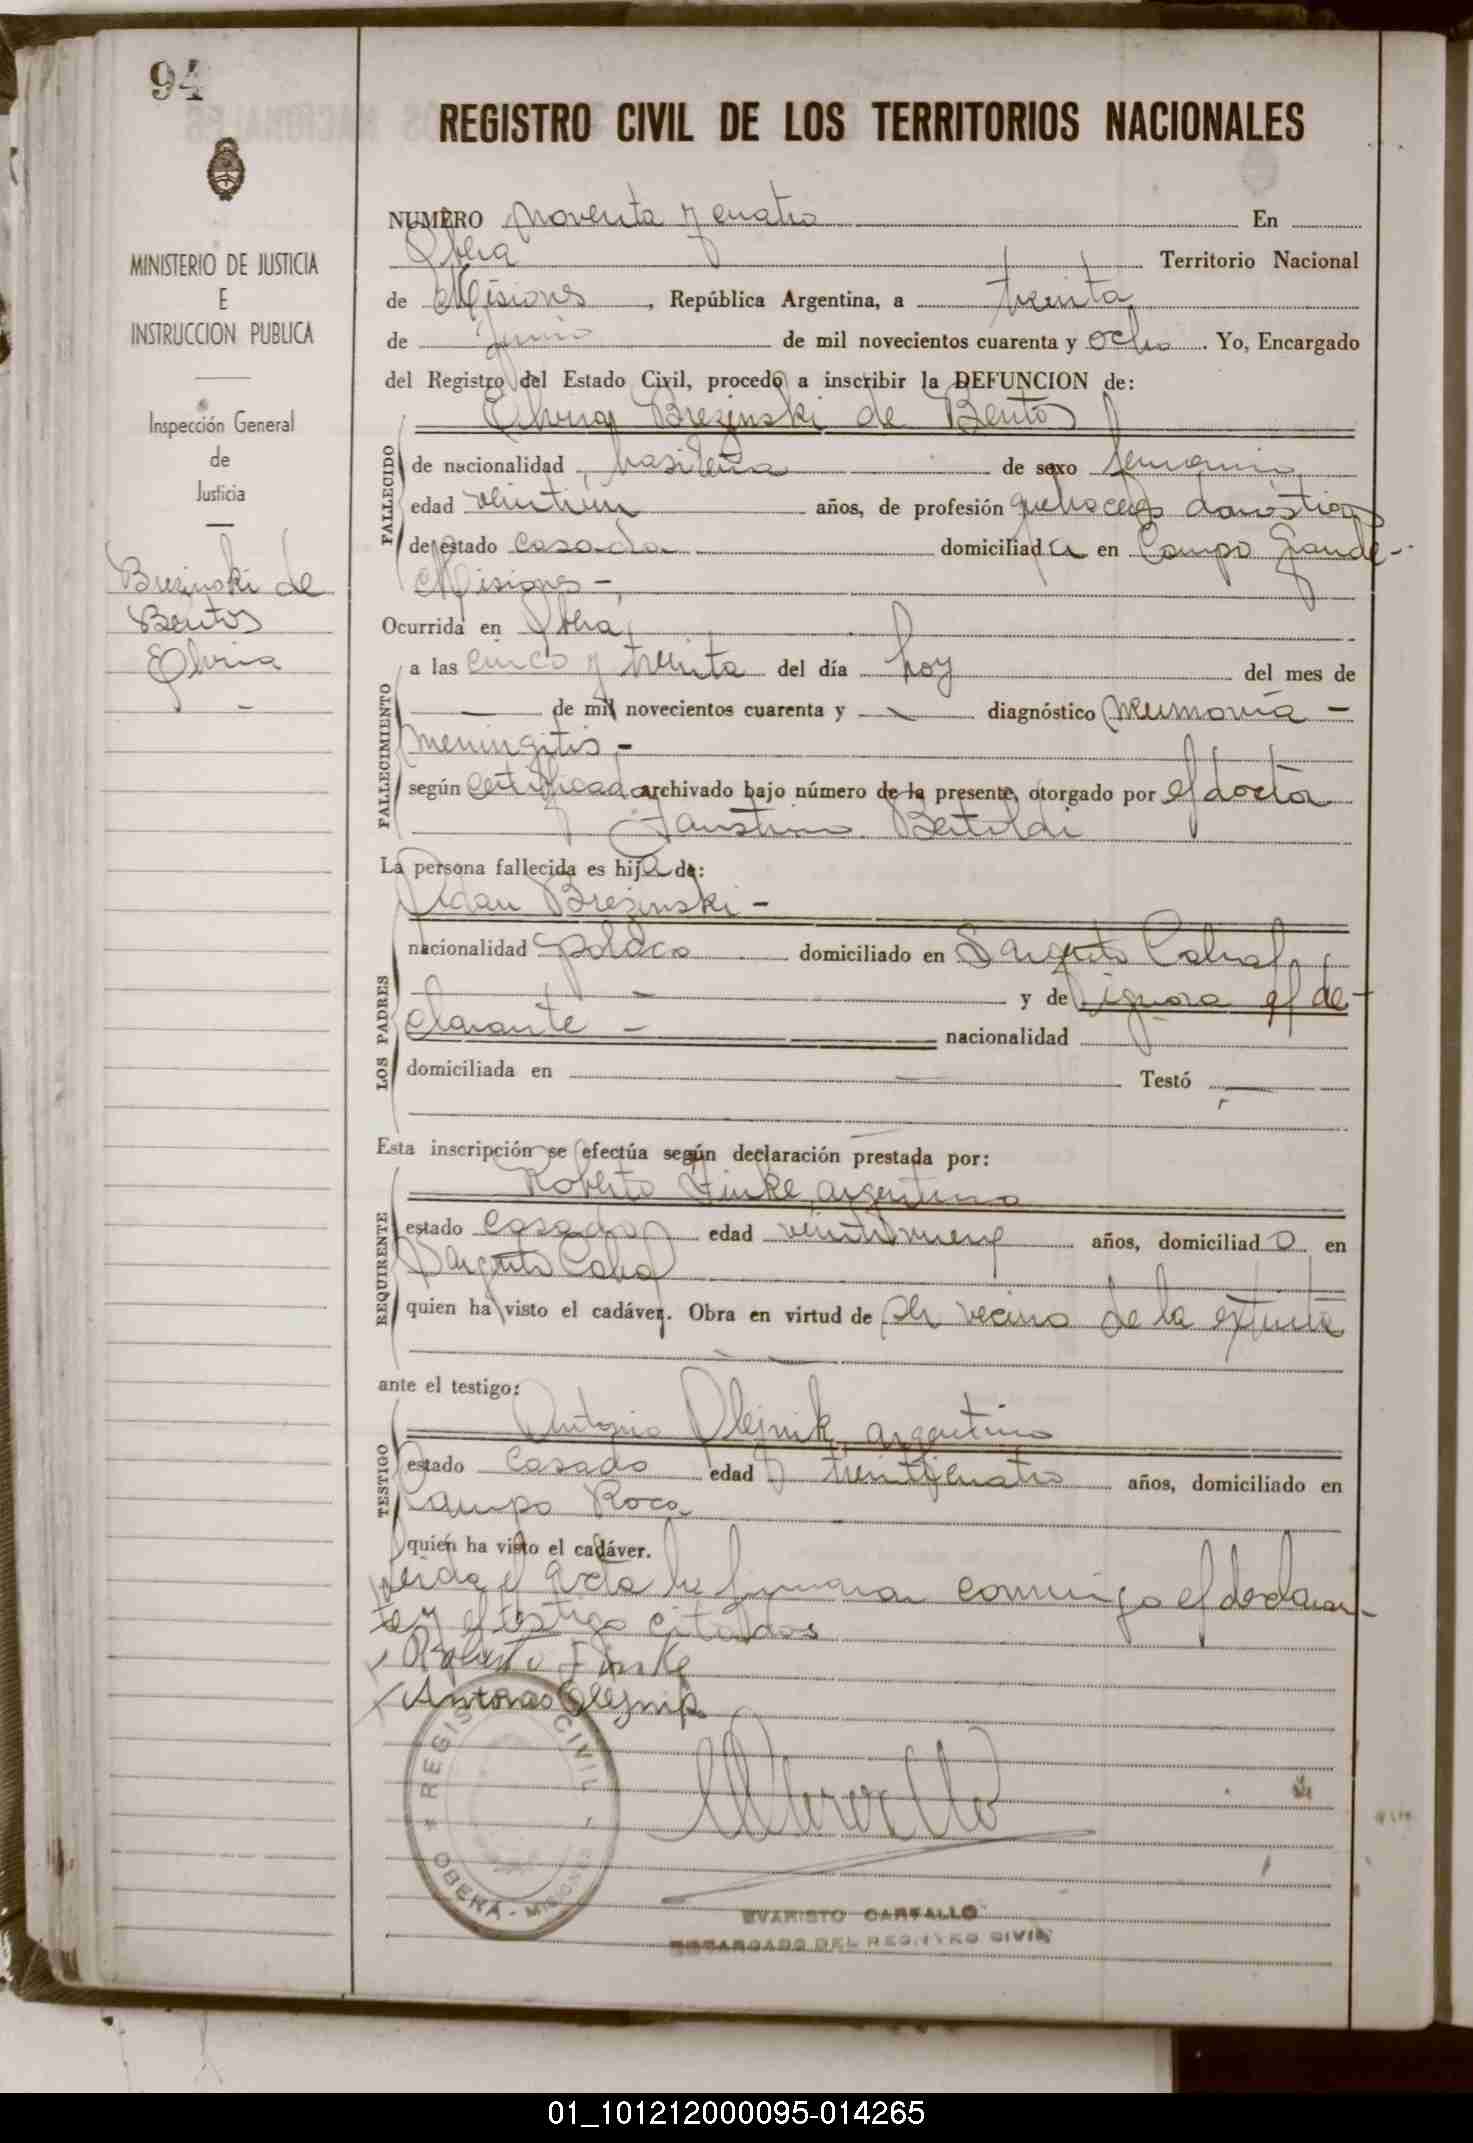 94
REGISTRO CIVIL DE LOS TERRITORIOS NACIONALES
MINISTERIO DE JUSTICIA
E
INSTRUCCION PUBLICA
Inspección General
de
Justicia
Brezinski de
Bentos
Elvria
NUMERO noventa y cuatro En
Obera Territorio Nacional
de Misiones, República Argentina, a treinta
de junio de mil novecientos cuarenta y ocho. Yo, Encargado
del Registro del Estado Civil, procedo a inscribir la DEFUNCION de:
Brezinski de Bentos
FALLECIDO
de nacionalidad brasileña de sexo femenino
edad veintiun años, de profesión quehaceres domésticos
de estado casada domiciliada en Campo Grande-
Misiones-
Ocurrida en Obera,
FALLECIMIENTO
a las cinco y treinta del día hoy del mes de
— de mil novecientos cuarenta y — diagnóstico neumonia -
meningitis.-
según certificado archivado bajo número de la presente, otorgado por el doctor
Faustino Bertoldi
La persona fallecida es hija de:
Adan Brezinski -
LOS PADRES
nacionalidad polaco domiciliado en Sargento Cabral
— y de ignora el de-
clarante - nacionalidad
domiciliada en — Testó —
Esta inscripción se efectúa según declaración prestada por:
Roberto Finke, argentino
REQUIRENTE
estado casado edad veintinueve años, domiciliado en
Sargento Cabral
quien ha visto el cadáver. Obra en virtud de ser vecino de la extinta
ante el testigo:
Antonio Olejnik, argentino
TESTIGO
estado casado edad treinta y cuatro años, domiciliado en
Campo Roca
quien ha visto el cadáver.
Leida el acta la firmaron conmigo el declaran-
te y el testigo citados
Roberto Finke
Antonio Olejnik
REGISTRO CIVIL
OBERÁ - MISIONES
EVARISTO CARFALLO
ENCARGADO DEL REGISTRO CIVIL
01_101212000095-014265